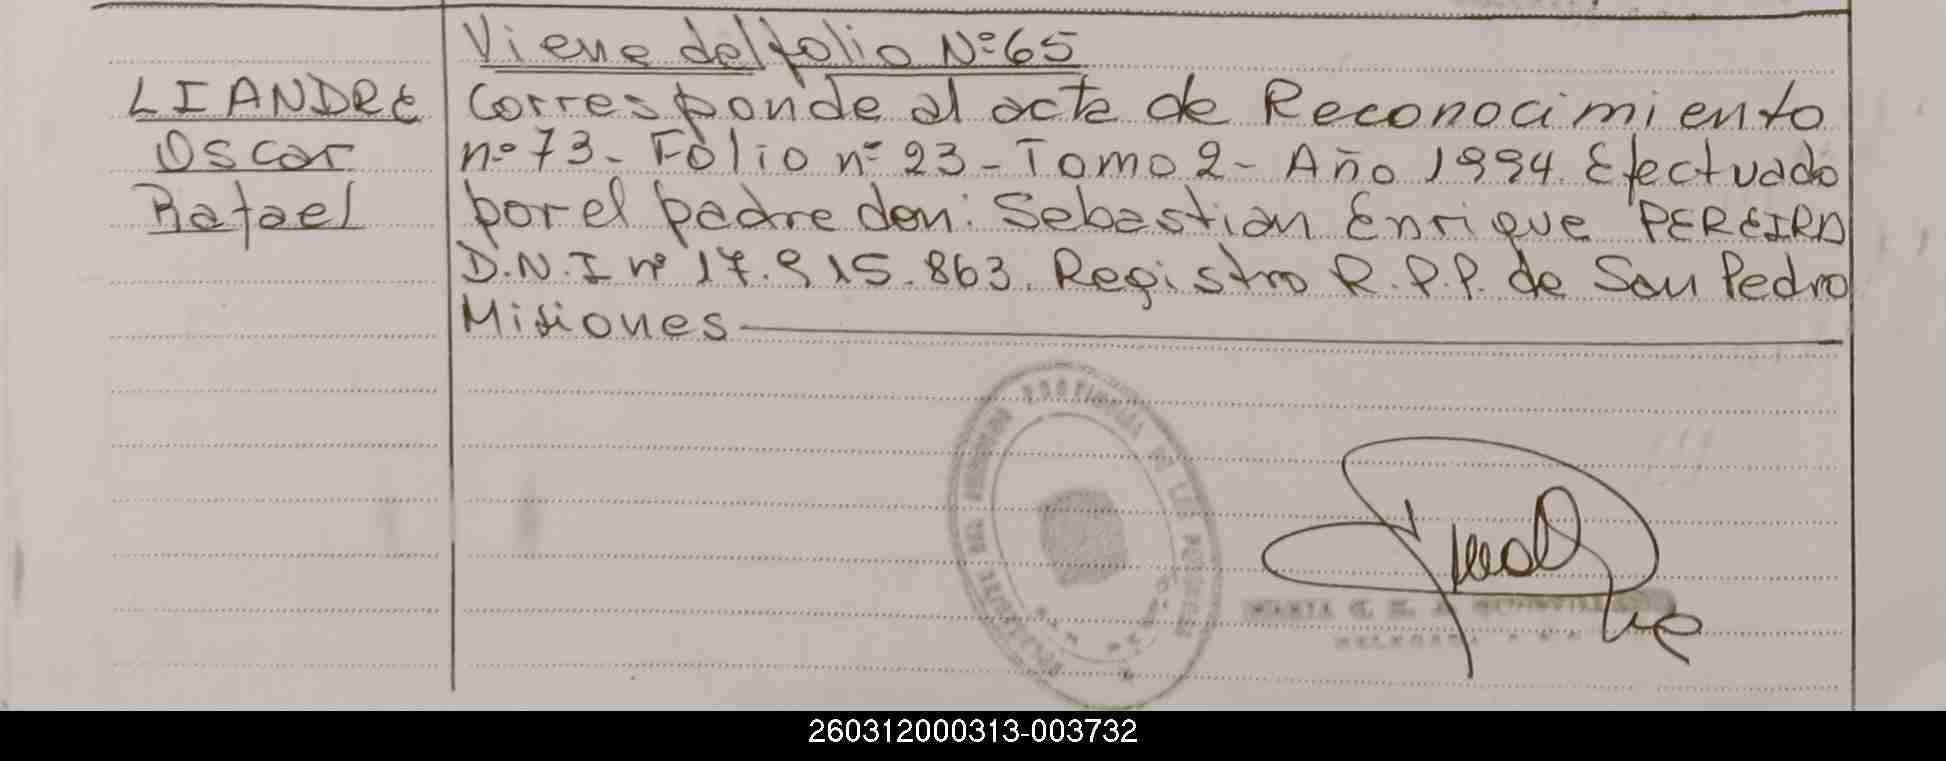 Viene del folio Nº 65
LIANDRE
Oscar
Rafael
Corresponde al acta de Reconocimiento
nº 73 - Folio nº 23 - Tomo 2 - Año 1994. Efectuado
por el padre don: Sebastian Enrique PEREIRA
D.N.I nº 17.915.863. Registro R.P.P. de San Pedro
Misiones
260312000313-003732